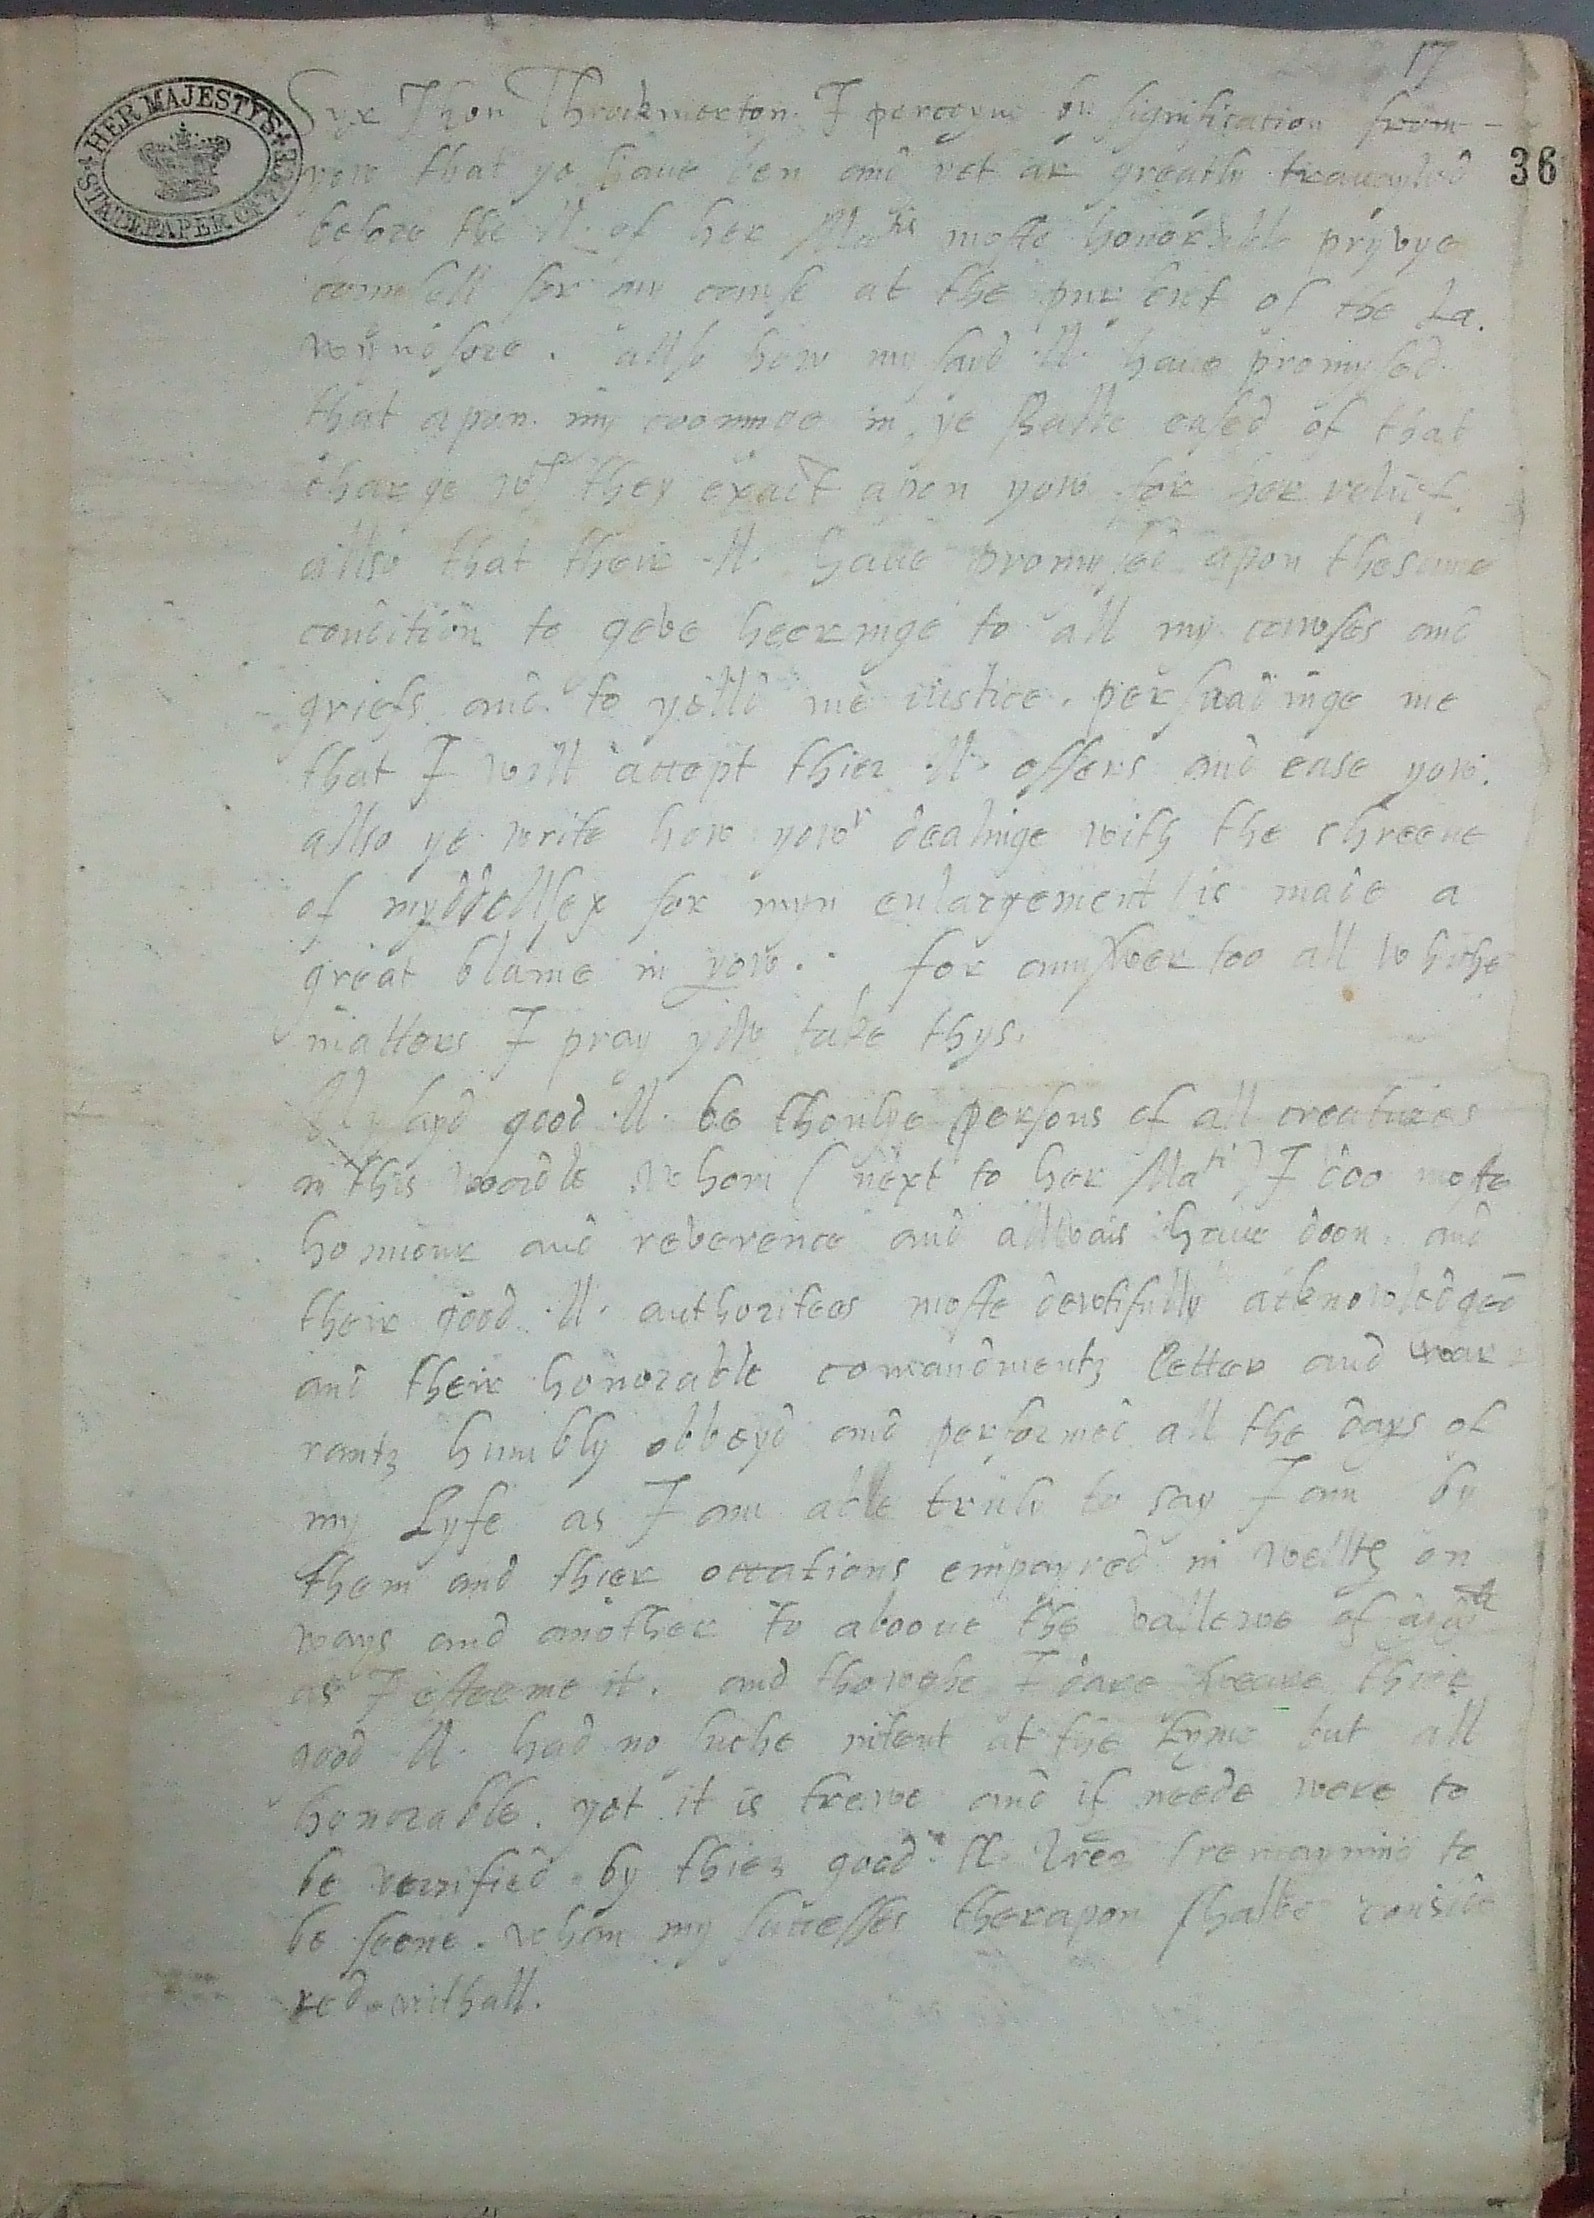 17
HER MAJESTY'S STATE PAPER OFFICE
36
Syr Ihon Throckmerton. I perceyve by signification from
yow that ye have ben and yet ar greatly travayled
before the ll. of her Matis moste honorable pryvye
counsell for my cause at the of the La.
wyndsore. allso how my said ll. have promysed
that apon my coominge in, ye shalbe eased of that
charge wch they exact apon yow for her relief.
allso that their ll. have promysed apon thesame
condition to geve heeringe to all my cawses and
griefs and to yelld me iustice. perswadinge me
that I will accept thier ll. offers and ease yow.
allso ye write how yowr dealinge with the shreeve
of myddellsex for myn enlargement / is made a
great blame in yow. : for aunswer too all whiche
matters I pray yow take thys.
My sayd good .ll. be thonlye persons of all creatures
in this worlde whom (next to her Matie) I doo moste
honnour and reverence and allwais have doon. and
their good .ll. authoritees moste dewtifully acknowledged
and their honorable comandmentz letter and war-
rantz humbly obbeyd and performed all the days of
my Lyfe as I am able truly to say I am by
them and thier occations empayred in wellth on
ways and another to aboove the vallewe of
as I esteeme it. and thowghe I dare sweare thier
good .ll. had no suche intent at the tyme but all
honorable. yet it is trewe and if neede were to
be verrified by thier good ll. lres remayning to
be seene. whan my successes therapon shalbe conside
red withall.